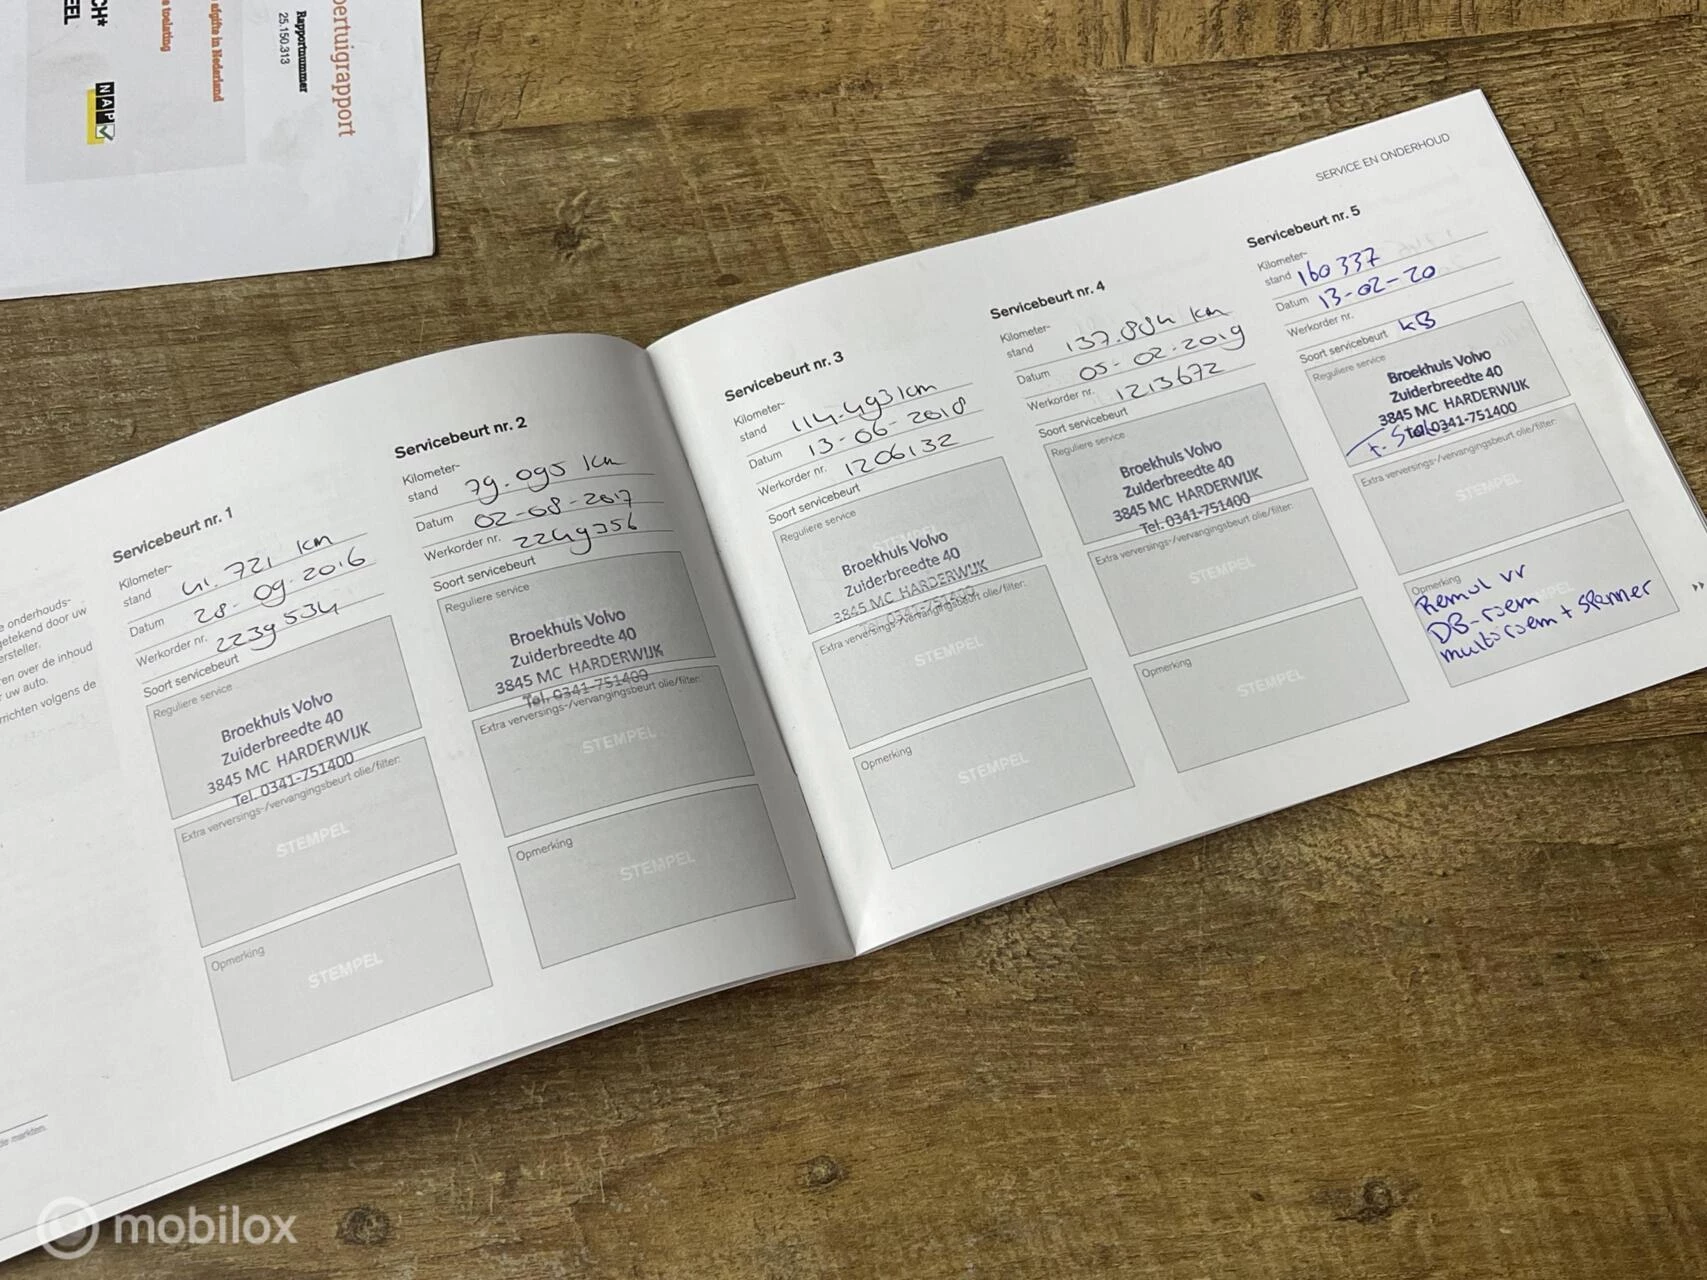 CH*
EEL
NAP
e toelating
afgifte in Nederland
Rapportnummer
25.150.313
ertuigrapport
e onderhouds-
getekend door uw
ersteller.
ren over de inhoud
r uw auto.
rrichten volgens de
de markten.
Servicebeurt nr. 1
Kilometer-
stand 41.721 km
Datum 28-09-2016
Werkorder nr. 2239534
Soort servicebeurt
Reguliere service
Broekhuis Volvo
Zuiderbreedte 40
3845 MC HARDERWIJK
Tel. 0341-751400
Extra verversings-/vervangingsbeurt olie/filter:
STEMPEL
Opmerking
STEMPEL
Servicebeurt nr. 2
Kilometer-
stand 79.095 km
Datum 02-08-2017
Werkorder nr. 2249356
Soort servicebeurt
Reguliere service
Broekhuis Volvo
Zuiderbreedte 40
3845 MC HARDERWIJK
Tel. 0341-751400
Extra verversings-/vervangingsbeurt olie/filter:
STEMPEL
Opmerking
STEMPEL
SERVICE EN ONDERHOUD
Servicebeurt nr. 3
Kilometer-
stand 114.493 km
Datum 13-06-2018
Werkorder nr. 1206132
Soort servicebeurt
Reguliere service
STEMPEL
Broekhuis Volvo
Zuiderbreedte 40
3845 MC HARDERWIJK
Tel. 0341-751400
Extra verversings-/vervangingsbeurt olie/filter:
STEMPEL
Opmerking
STEMPEL
Servicebeurt nr. 4
Kilometer-
stand 137.884 km
Datum 05-02-2019
Werkorder nr. 1213672
Soort servicebeurt
Reguliere service
Broekhuis Volvo
Zuiderbreedte 40
3845 MC HARDERWIJK
Tel. 0341-751400
Extra verversings-/vervangingsbeurt olie/filter:
STEMPEL
Opmerking
STEMPEL
Servicebeurt nr. 5
Kilometer-
stand 160337
Datum 13-02-20
Werkorder nr.
Soort servicebeurt KB
Reguliere service
Broekhuis Volvo
Zuiderbreedte 40
3845 MC HARDERWIJK
Tel. 0341-751400
Extra verversings-/vervangingsbeurt olie/filter:
STEMPEL
Opmerking
Remol vr
DB-riem
multiriem + spanner
mobilox